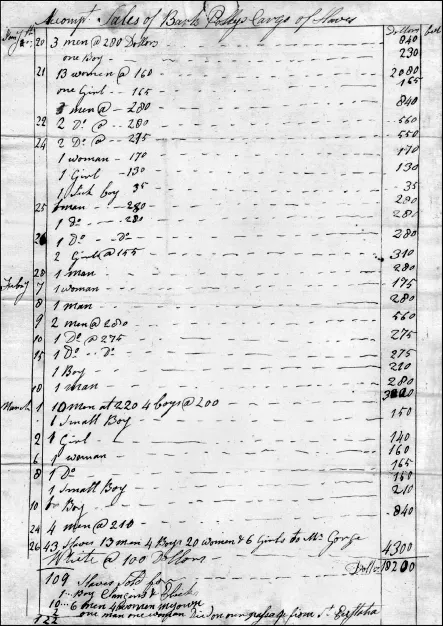 Accompt Sales of Bark Pollys Cargo of Slaves
Dollars
20 3 men @ 280 Dollars 840
one Boy 230
21 13 women @ 160 2080
one Girl 165 165
3 men @ 280 840
22 2 Do @ 280 560
24 2 Do @ 275 550
1 woman 170 170
1 Girl 130 130
1 Sick boy 35 35
25 1 man 280 280
1 Do 280 280
26 1 Do Do 280
2 Girls @ 155 310
28 1 man 280
Febry 7 1 woman 175
8 1 man 280
9 2 men @ 280 560
10 1 Do @ 275 275
15 1 Do Do 275
1 Boy 220
18 1 man 280
March 1 10 Men at 220 4 boys @ 200
1 Small Boy 150
2 1 Girl 140
6 1 woman 160
8 1 Do 165
1 Small Boy 150
10 Boy 210
24 4 men @ 210 840
26 43 Slaves 13 man 4 Boys 20 women & 6 Girls to Mr Gorge
White @ 100 Dollars 4300
109 Slaves Sold
1 Boy &
10 6 men 4 women
2 one man one woman Died on our passage from St Eustatia
122